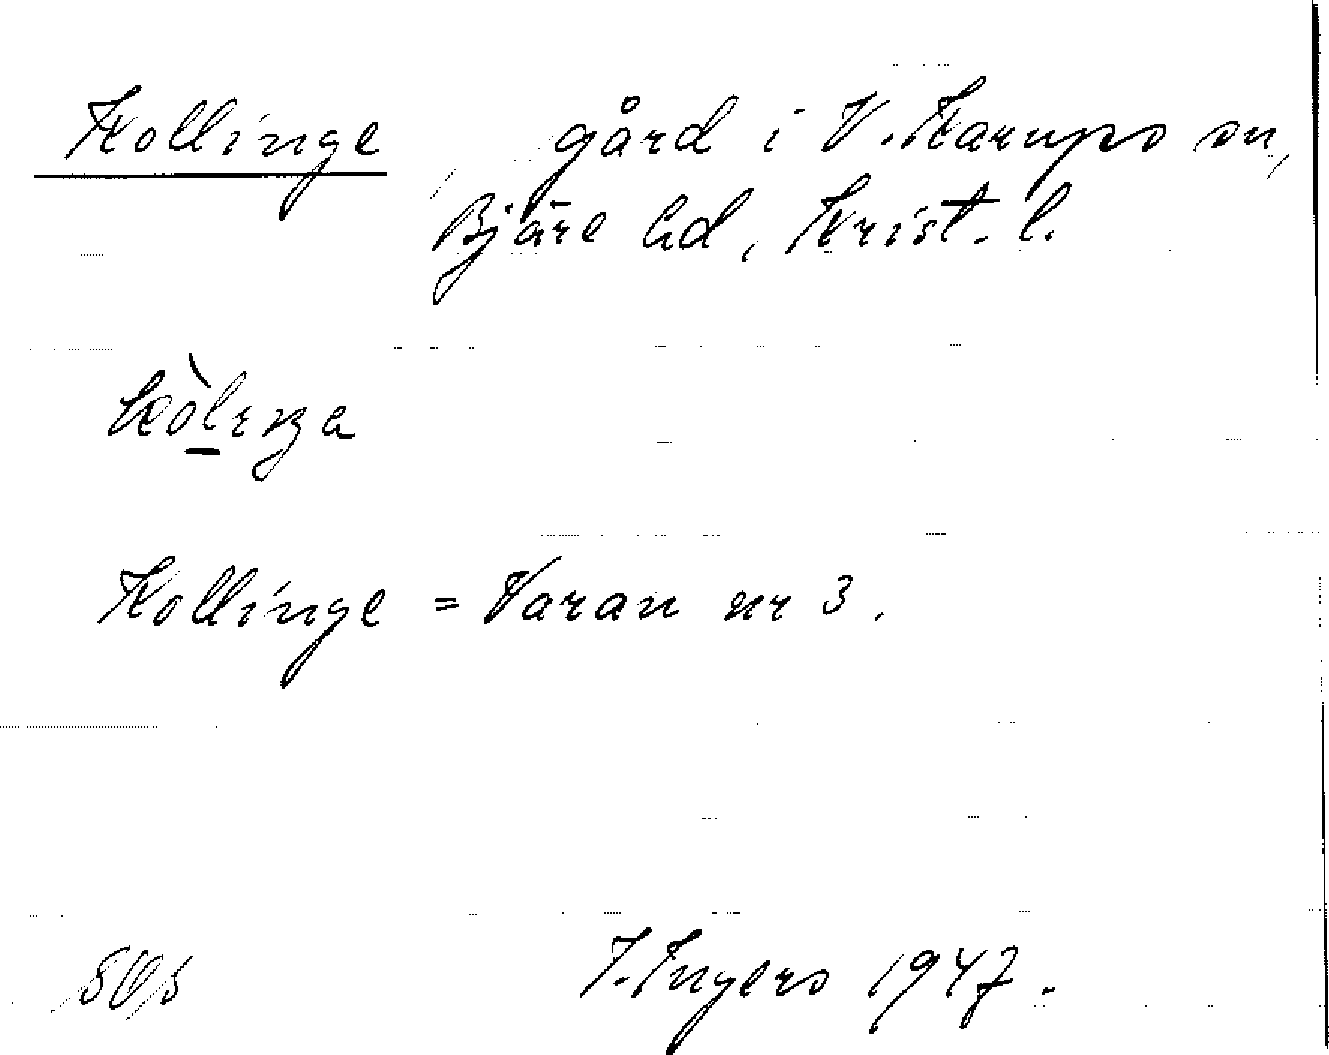 Kollinge, gård i V. Karups sn,
Bjäre hd, Krist. l.
Kollinge = Varan nr 3.
I. Ingers 1947.